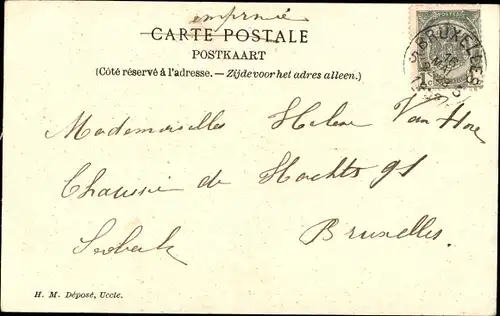 imprimé
CARTE POSTALE
POSTKAART
(Côté réservé à l'adresse. — Zijde voor het adres alleen.)
BRUXELLES
Mademoiselles Helene Van Hove
Chaussée de Haecht 91
Bruxelles.
H. M. Déposé, Uccle.